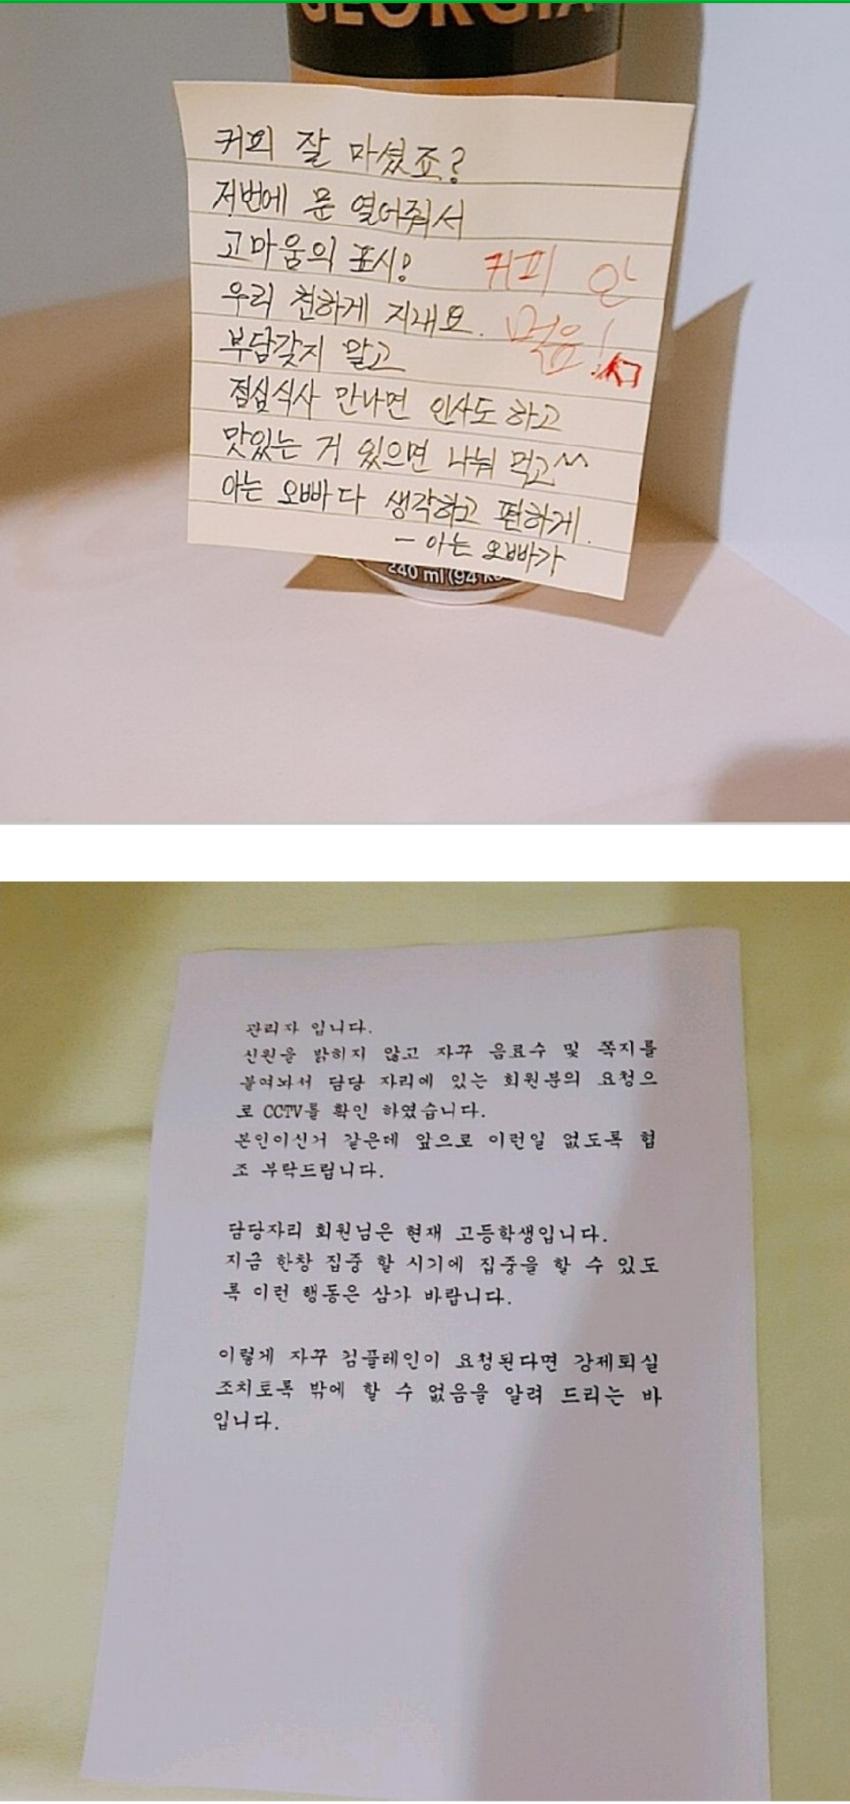 GEORGIA
커피 잘 마셨죠?
저번에 문 열어줘서
고마움의 표시!
우리 친하게 지내요.
부담갖지 말고
점심식사 만나면 인사도 하고
맛있는 거 있으면 나눠 먹고^^
아는 오빠다 생각하고 편하게.
- 아는 오빠가
커피 안
먹음!
240 ml (94
관리자 입니다.
신원을 밝히지 않고 자꾸 음료수 및 쪽지를
붙여놔서 담당 자리에 있는 회원분의 요청으
로 CCTV를 확인 하였습니다.
본인이신거 같은데 앞으로 이런일 없도록 협
조 부탁드립니다.
담당자리 회원님은 현재 고등학생입니다.
지금 한창 집중 할 시기에 집중을 할 수 있도
록 이런 행동은 삼가 바랍니다.
이렇게 자꾸 컴플레인이 요청된다면 강제퇴실
조치토록 밖에 할 수 없음을 알려 드리는 바
입니다.